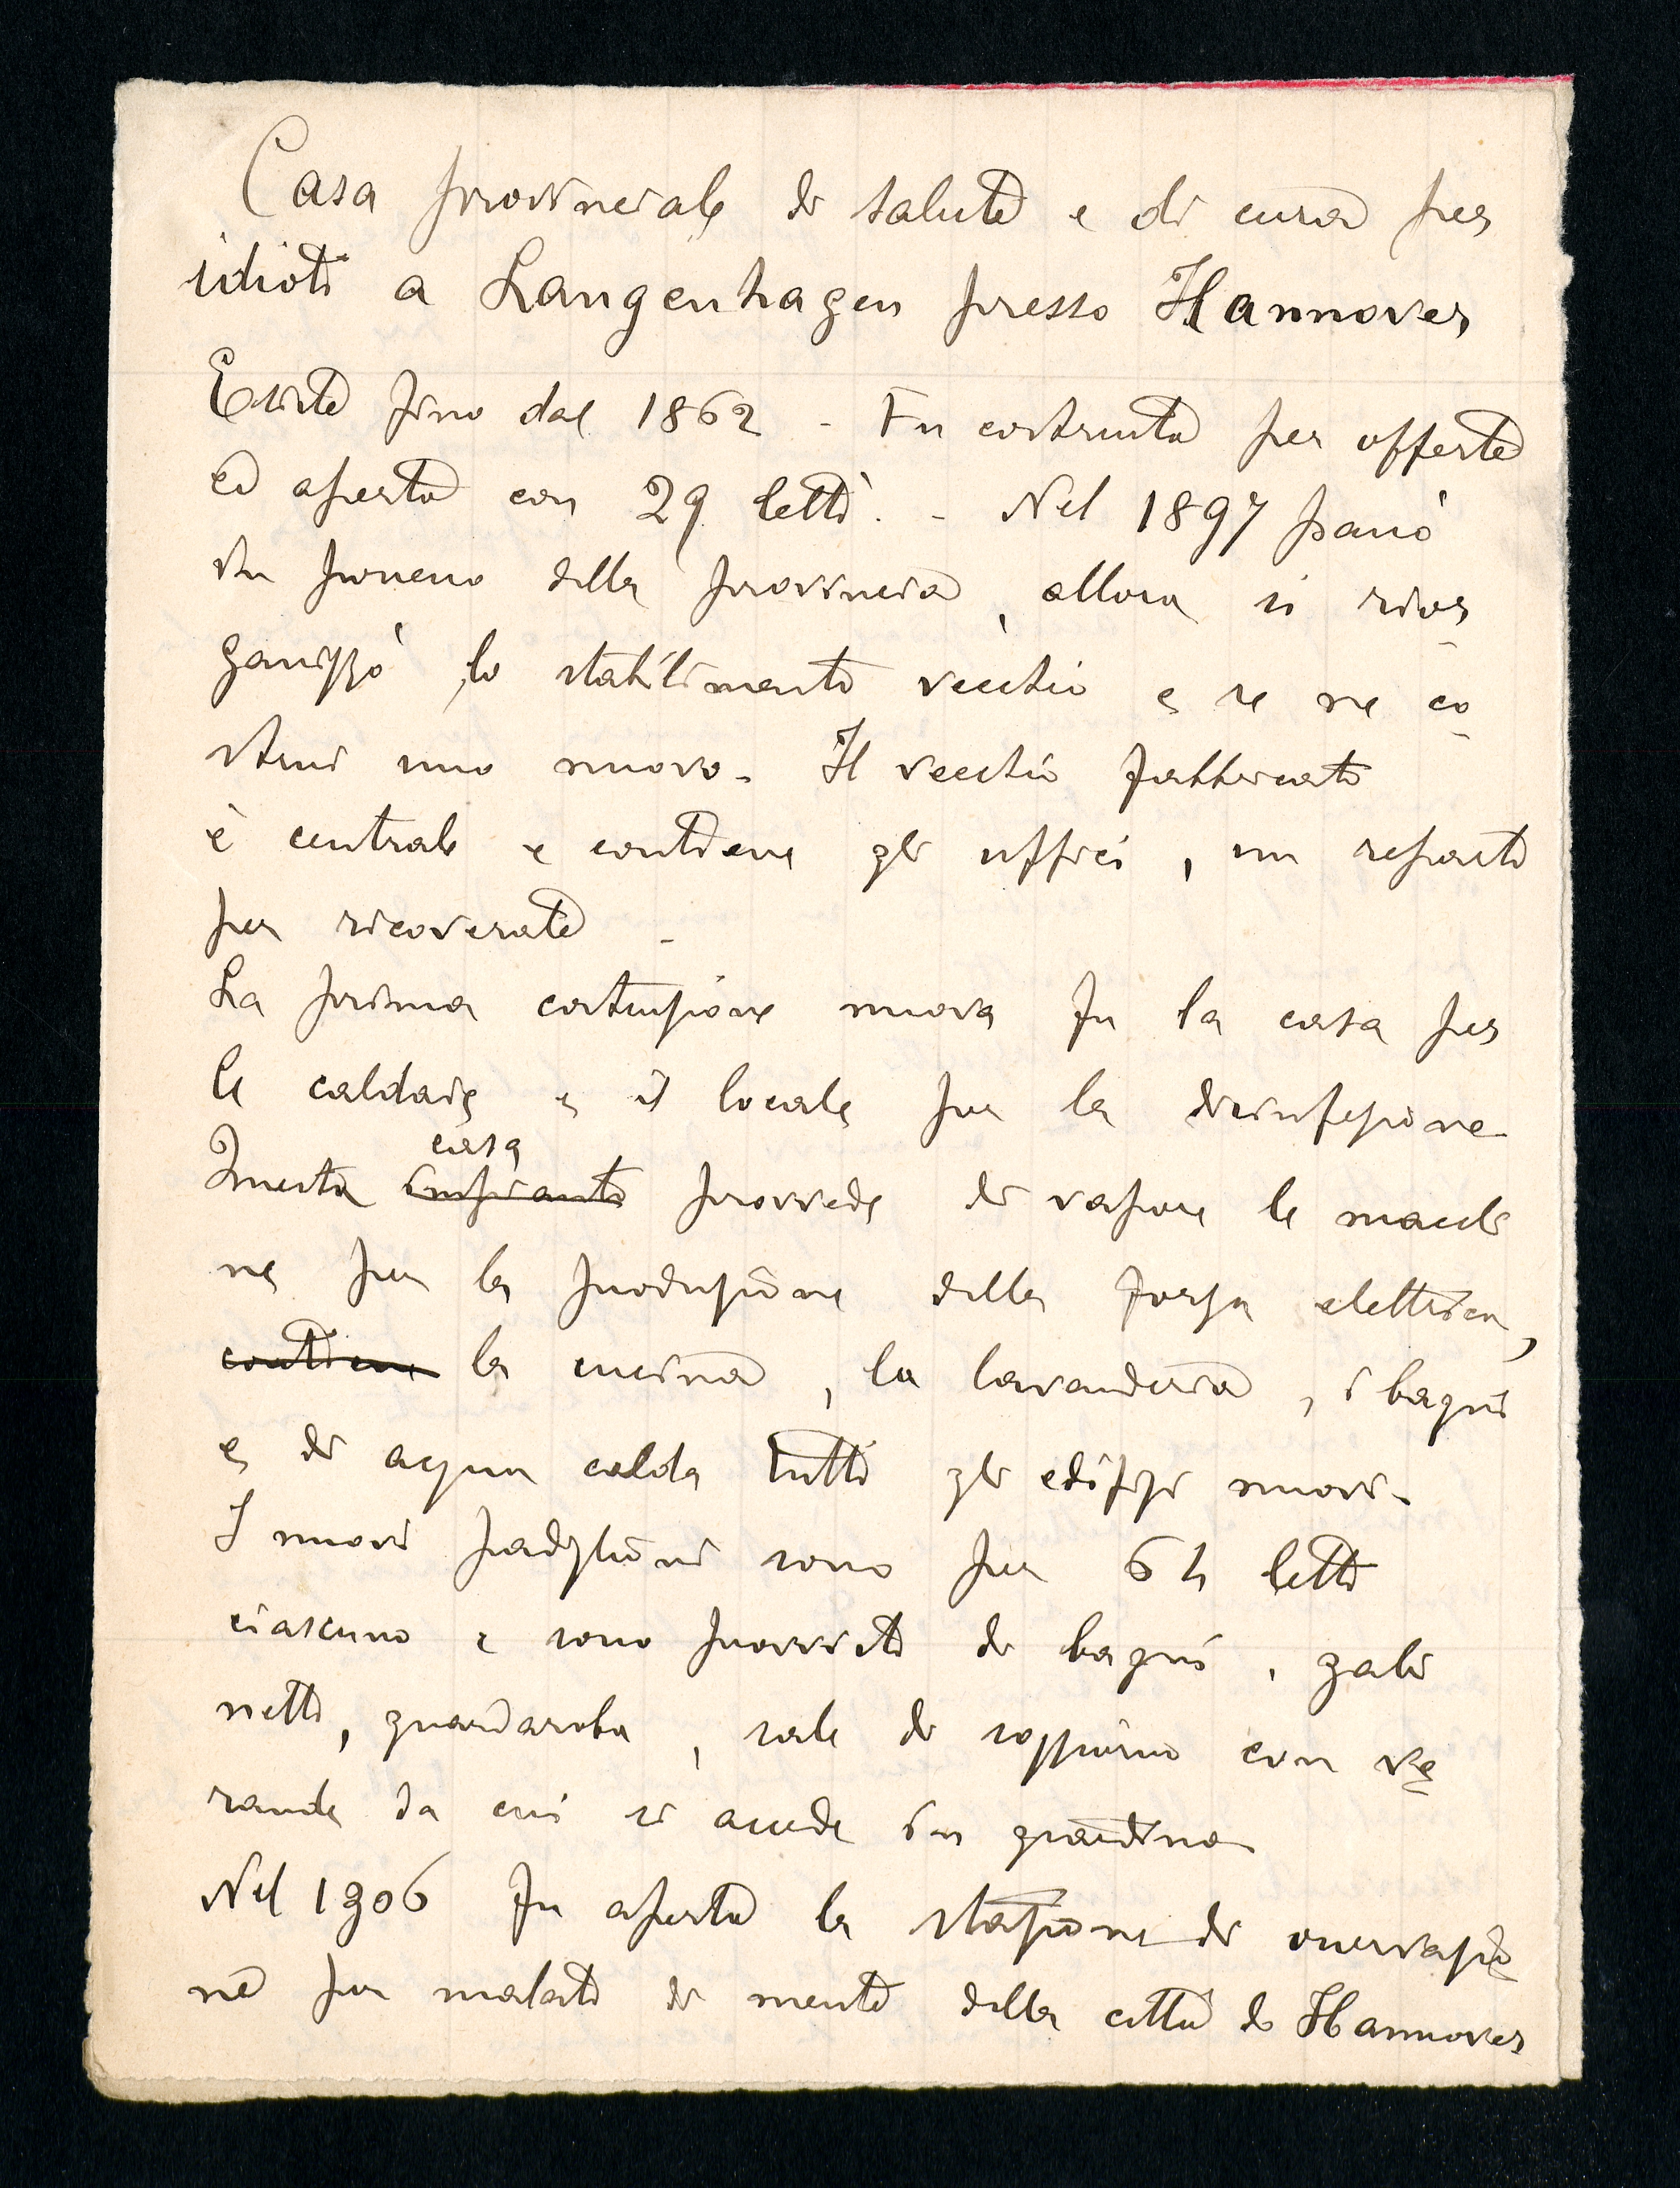 Casa provinciale di salute e di cura per
idioti a Langenhagen presso Hannover
Esiste fino dal 1862 - Fu costruita per offerte
ed aperta con 29 letti. - Nel 1897 passò
in possesso della provincia, allora si rior
ganizzò lo stabilimento vecchio e se ne co
struì uno nuovo - Il vecchio fabbricato
è centrale e contiene gli uffici, un reparto
per ricoverate -
La prima costruzione nuova fu la casa per
le caldaie e il locale per la disinfezione
casa
Questa impianto provvede di vapore le macchi
ne per la produzione della forza elettrica,
contiene la cucina, la lavanderia, i bagni
e di acqua calda tutti gli edifizi nuovi -
I nuovi padiglioni sono per 64 letti
ciascuno e sono provvisti di bagni, gabi
netti, guardaroba, sale di soggiorno con ve
rande da cui si accede in giardino
Nel 1906 fu aperta la stazione di osservazio
ne per malati di mente della città di Hannover